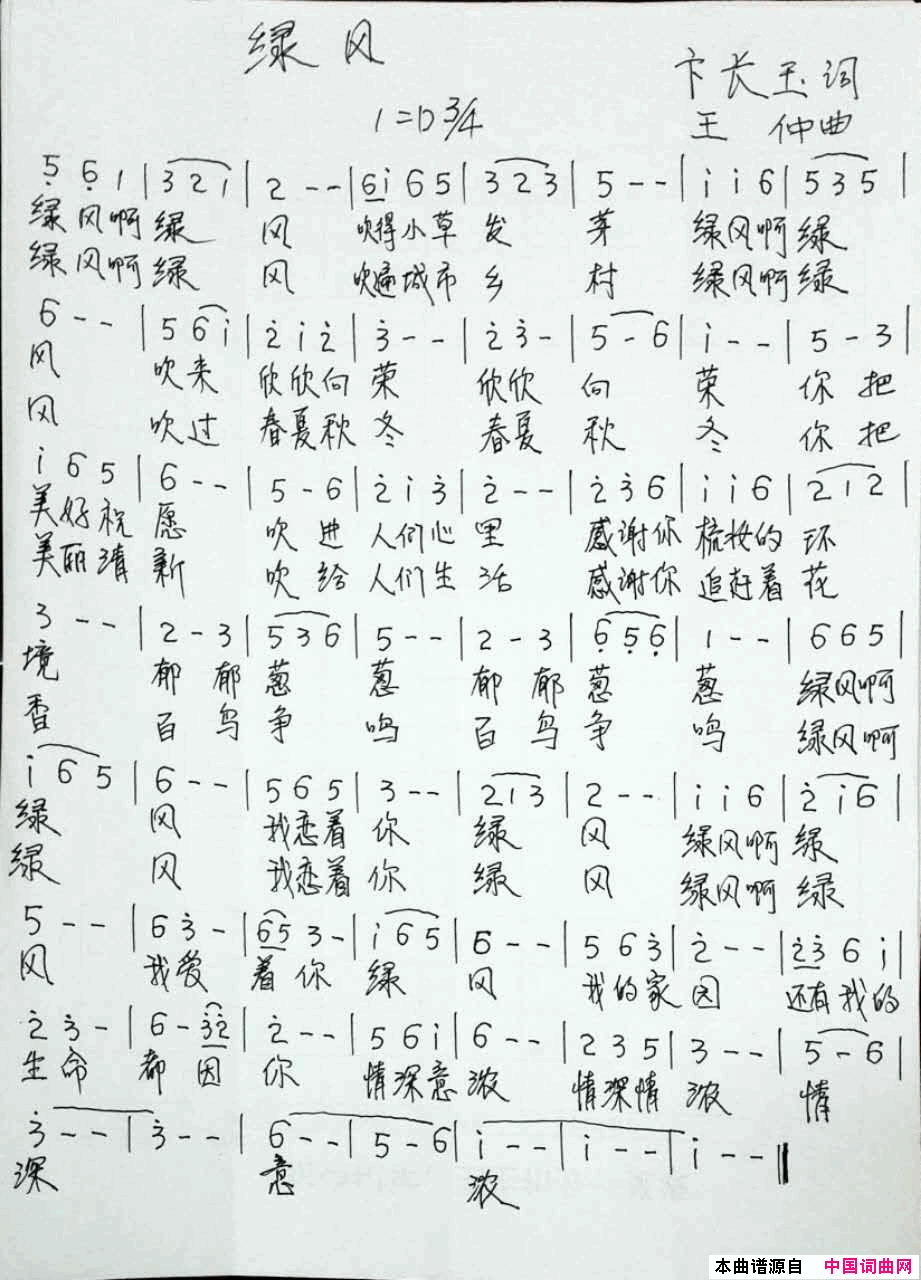 绿风
卞长玉词
1=D 3/4
王 仲曲
5̣ 6̣ 1 | 3 2 1 | 2 - - | 6 i 6 5 | 3 2 3 | 5 - - | i i 6 | 5 3 5 |
绿风啊 绿 风 吹得小草 发 芽 绿风啊 绿
绿风啊 绿 风 吹遍城市 乡 村 绿风啊 绿
6 - - | 5 6 i | 2̇ i 2̇ | 3̇ - - | 2̇ 3̇ - | 5 - 6 | i - - | 5 - 3 |
风 吹来 欣欣向 荣 欣欣 向 荣 你 把
风 吹过 春夏秋 冬 春夏 秋 冬 你 把
i 6 5 | 6 - - | 5 - 6 | 2̇ i 3̇ | 2̇ - - | 2̇ 3̇ 6 | i i 6 | 2 1 2 |
美好祝 愿 吹 进 人们心 里 感谢你 梳妆的 环
美丽清 新 吹 给 人们生 活 感谢你 追赶着 花
3 - - | 2 - 3 | 5 3 6 | 5 - - | 2 - 3 | 6̣ 5̣ 6̣ | 1 - - | 6 6 5 |
境 郁 郁 葱 葱 郁 郁 葱 葱 绿风啊
香 百 鸟 争 鸣 百 鸟 争 鸣 绿风啊
i 6 5 | 6 - - | 5 6 5 | 3 - - | 2 1 3 | 2 - - | i i 6 | 2̇ i 6 |
绿 风 我恋着 你 绿 风 绿风啊 绿
绿 风 我恋着 你 绿 风 绿风啊 绿
5 - - | 6 3̇ - | 6 5 3 - | i 6 5 | 6 - - | 5 6 3̇ | 2̇ - - | 2̇ 3̇ 6 i |
风 我爱 着 你 绿 风 我的家 园 还有我的
2̇ 3̇ - | 6 - 3̇ 2̇ | 2̇ - - | 5 6 i | 6 - - | 2 3 5 | 3 - - | 5 - 6 |
生命 都 因 你 情深意 浓 情深情 浓 情
3̇ - - | 3̇ - - | 6 - - | 5 - 6 | i - - | i - - | i - - ‖
深 意 浓
本曲谱源自 中国词曲网